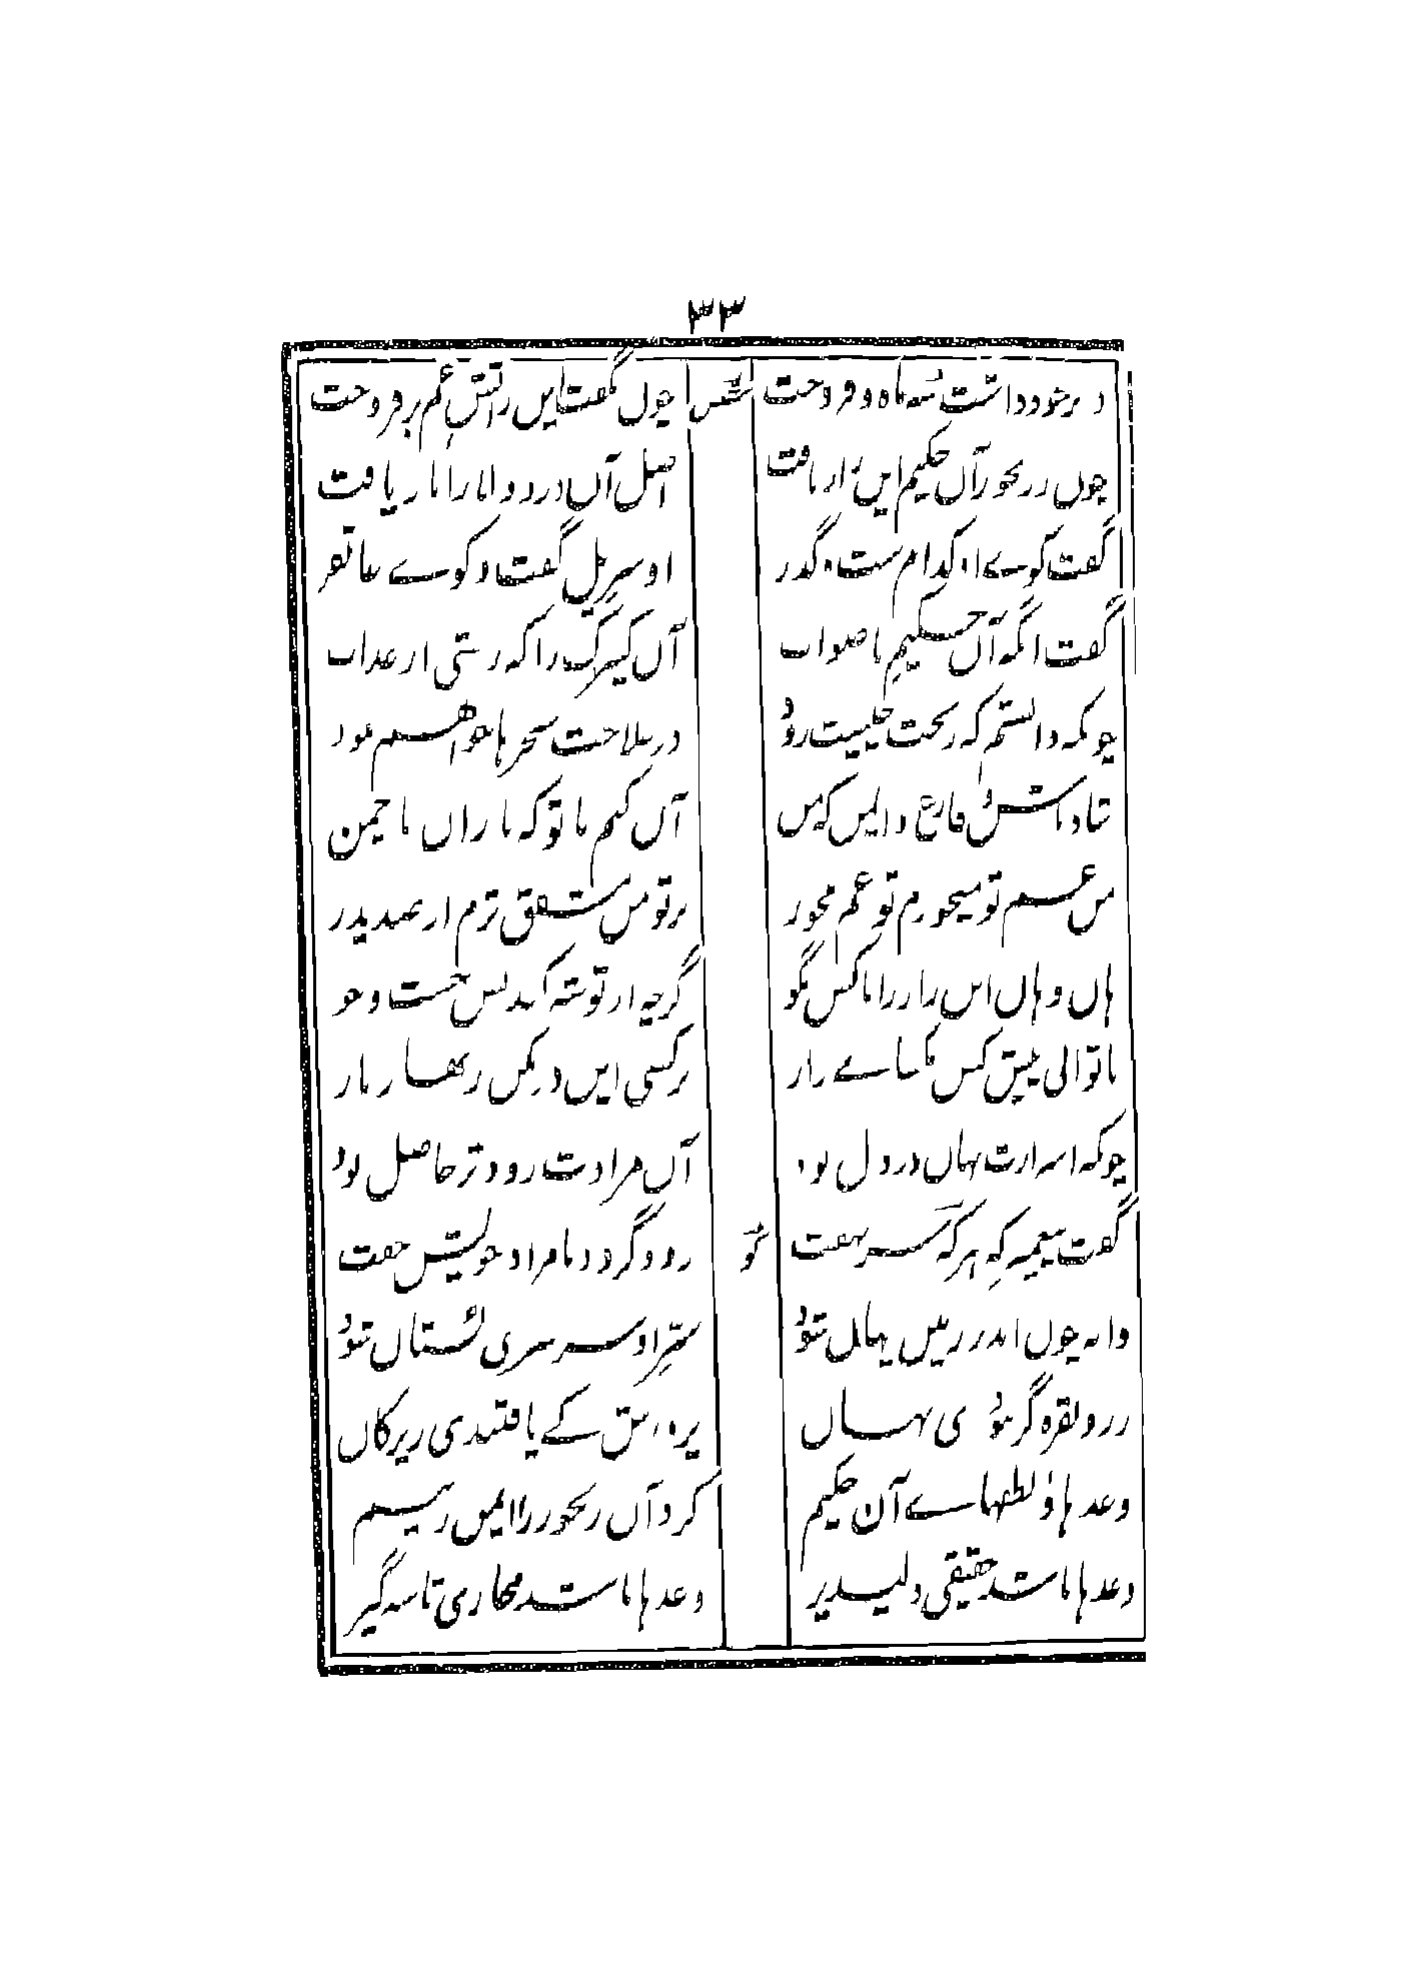 ۳۳
در بر خود داشت شش ماه و فروخت چوں بگفت ایں ز آتش غم بر فروخت
چوں ز رنجور آں حکیم ایں راز یافت اصل آں درد و بلا را باز یافت
گفت کوے او کدام ست و گذر او سر پل گفت و کوے غاتفر
گفت آنگه آں حکیم با صواب آں کنیزک را که رستی از عذاب
چونکه دانستم که رنجت چیست زود در علاجت سحرها خواهم نمود
شاد باش و فارغ و ایمن که من آں کنم با تو که باراں با چمن
من غم تو میخورم تو غم مخور بر تو من مشفق ترم از صد پدر
هاں و هاں ایں راز را با کس مگو گرچه از تو شه کند بس جست و جو
تا توانی پیش کس مکشاے راز بر کسی ایں در مکن زنهار باز
چونکه اسرارت نهاں در دل بود آں مرادت زودتر حاصل بود
گفت پیغمبر که هر که سر نهفت زود گردد با مراد خویش جفت
دانه چوں اندر زمیں پنهاں شود سر او سر سبزی بستاں شود
زر و نقره گر نبودی نهاں پرورش کے یافتندی زیر کاں
وعدها و لطفهاے آن حکیم کرد آں رنجور را ایمن ز بیم
وعدها باشد حقیقی دلپذیر وعدها باشد مجازی تاسه گیر